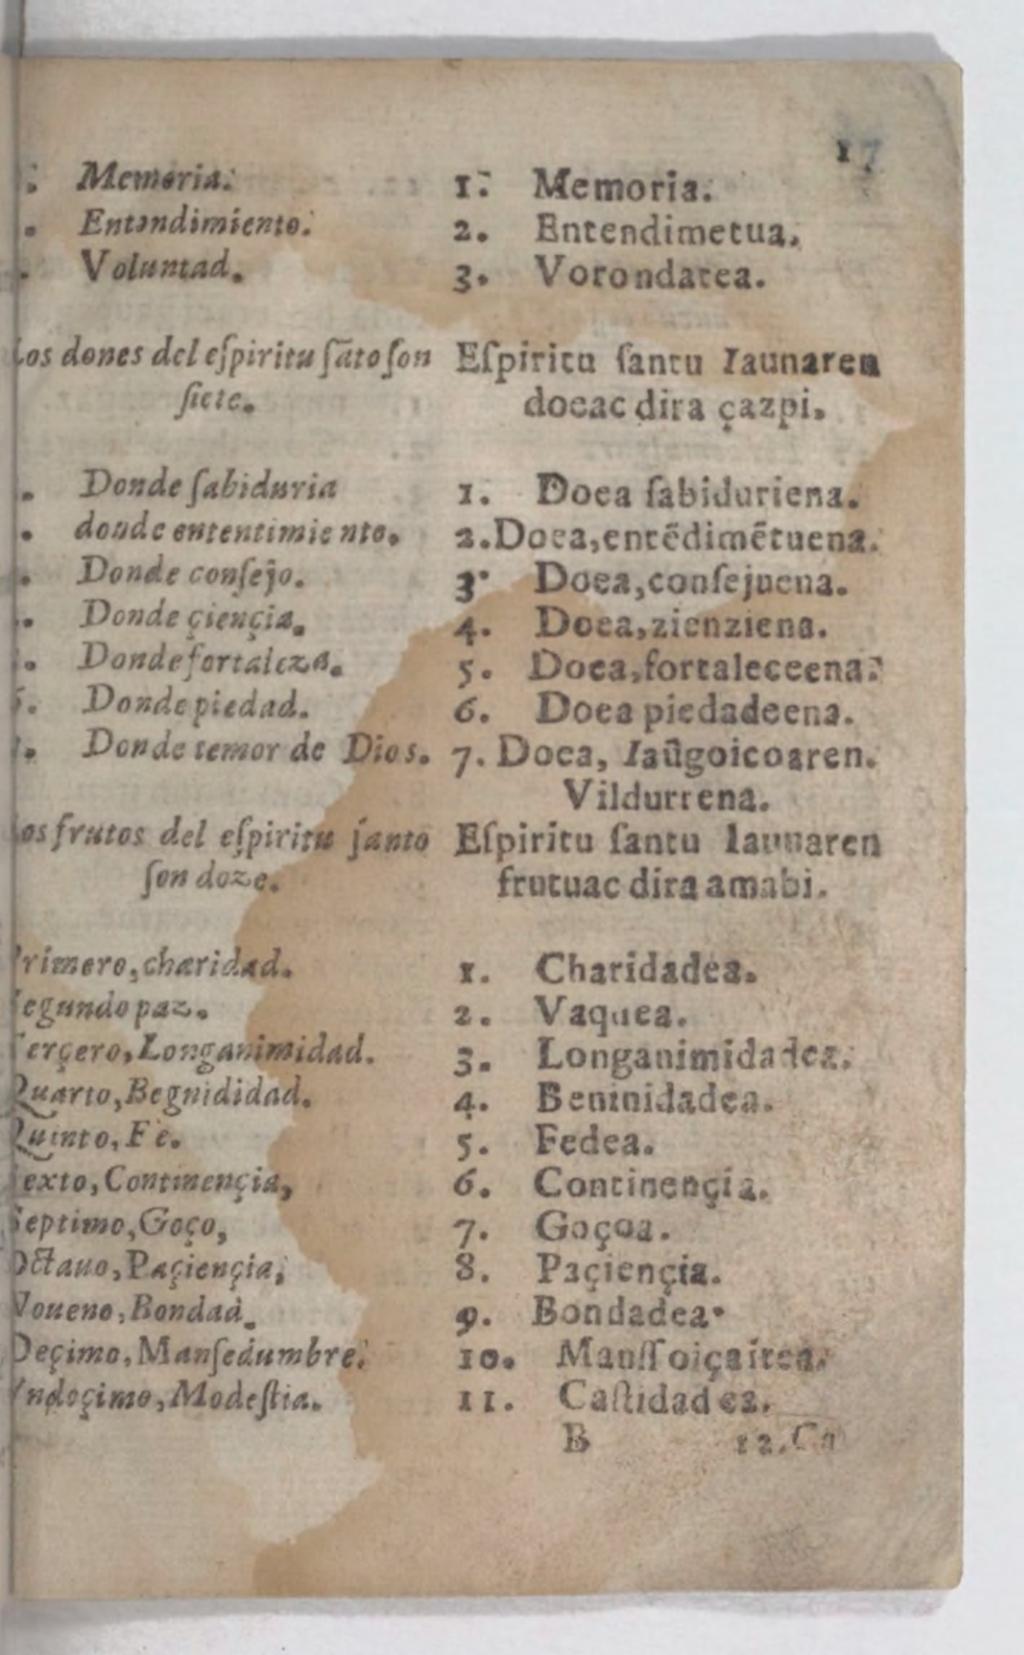 17
Memoria.
Entendimiento.
Voluntad.
Los dones del eſpiritu ſãto ſon
ſiete.
Donde ſabiduria
donde ententimiento.
Donde conſejo.
Donde çiençia.
Donde fortaleza.
Donde piedad.
Donde temor de Dios.
os frutos del eſpiritu ſanto
ſon doze.
rimero, charidad.
egundo paz.
erçero, Longanimidad.
Quarto, Begnididad.
Quinto, Fe.
exto, Continençia,
Septimo, Goço,
Octauo, Paçiençia,
Noueno, Bondad.
Deçimo, Manſedumbre.
Vndoçimo, Modeſtia.
1. Memoria.
2. Entendimetua.
3. Vorondatea.
Eſpiritu ſantu Iaunaren
doeac dira çazpi.
1. Doea ſabiduriena.
2. Doea, entẽdimẽtuena.
3. Doea, conſejuena.
4. Doea, zienziena.
5. Doea, fortaleceena.
6. Doea piedadeena.
7. Doea, Iaũgoicoaren.
Vildurrena.
Eſpiritu ſantu Iaunaren
frutuac dira amabi.
1. Charidadea.
2. Vaquea.
3. Longanimidadea.
4. Beninidadea.
5. Fedea.
6. Continençia.
7. Goçoa.
8. Paçiençia.
9. Bondadea.
10. Manſſoiçaitea.
11. Caſtidadea.
B 12. Ca